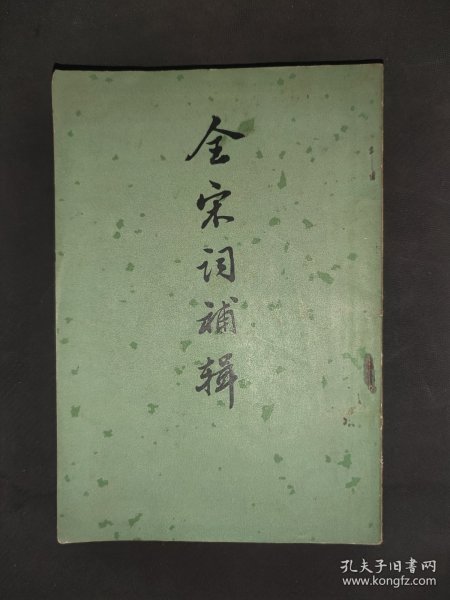 全宋词补辑
孔夫子旧书网
www.kongfz.com